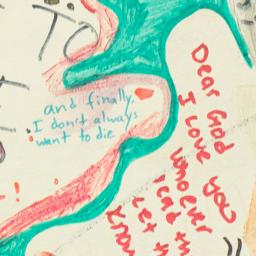 TO
and finally,
I don't always
want to die
Dear God
I Love you
whoever
read th
Let th
Know